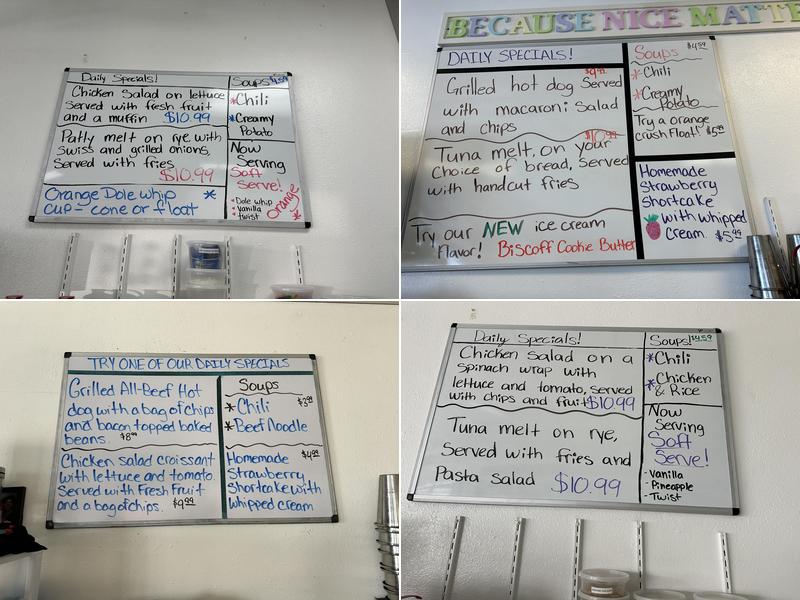 Daily Specials!
Chicken Salad on lettuce
Served with fresh fruit
and a muffin $10.99
Patty melt on rye with
Swiss and grilled onions,
Served with fries
$10.99
Orange Dole whip *
cup - cone or float
Soups $4.59
* Chili
* Creamy
Potato
Now
Serving
Soft
Serve!
• Dole whip
• Vanilla
• twist
Orange *
BECAUSE NICE MATTE
DAILY SPECIALS!
$9.99
Grilled hot dog Served
with macaroni Salad
and chips
$10.99
Tuna melt, on your
Choice of bread, Served
with handcut fries
Try our NEW ice cream
Flavor! Biscoff Cookie Butter
Soups $4.59
* Chili
* Creamy
Potato
Try a orange
crush Float! $5.99
Homemade
Strawberry
Shortcake
with whipped
Cream $5.99
TRY ONE OF OUR DAILY SPECIALS
Grilled All-Beef Hot
dog with a bag of chips
and bacon topped baked
beans. $8.99
Chicken salad croissant
with lettuce and tomato.
Served with Fresh Fruit
and a bag of chips. $9.99
Soups
* Chili $3.99
* Beef Noodle
Homemade $4.99
Strawberry
Shortcake with
whipped cream
Daily Specials!
Chicken Salad on a
spinach wrap with
lettuce and tomato, served
with chips and fruit $10.99
Tuna melt on rye,
Served with fries and
Pasta salad $10.99
Soups! $4.59
* Chili
* Chicken
& Rice
Now
Serving
Soft
Serve!
- Vanilla
- Pineapple
- Twist